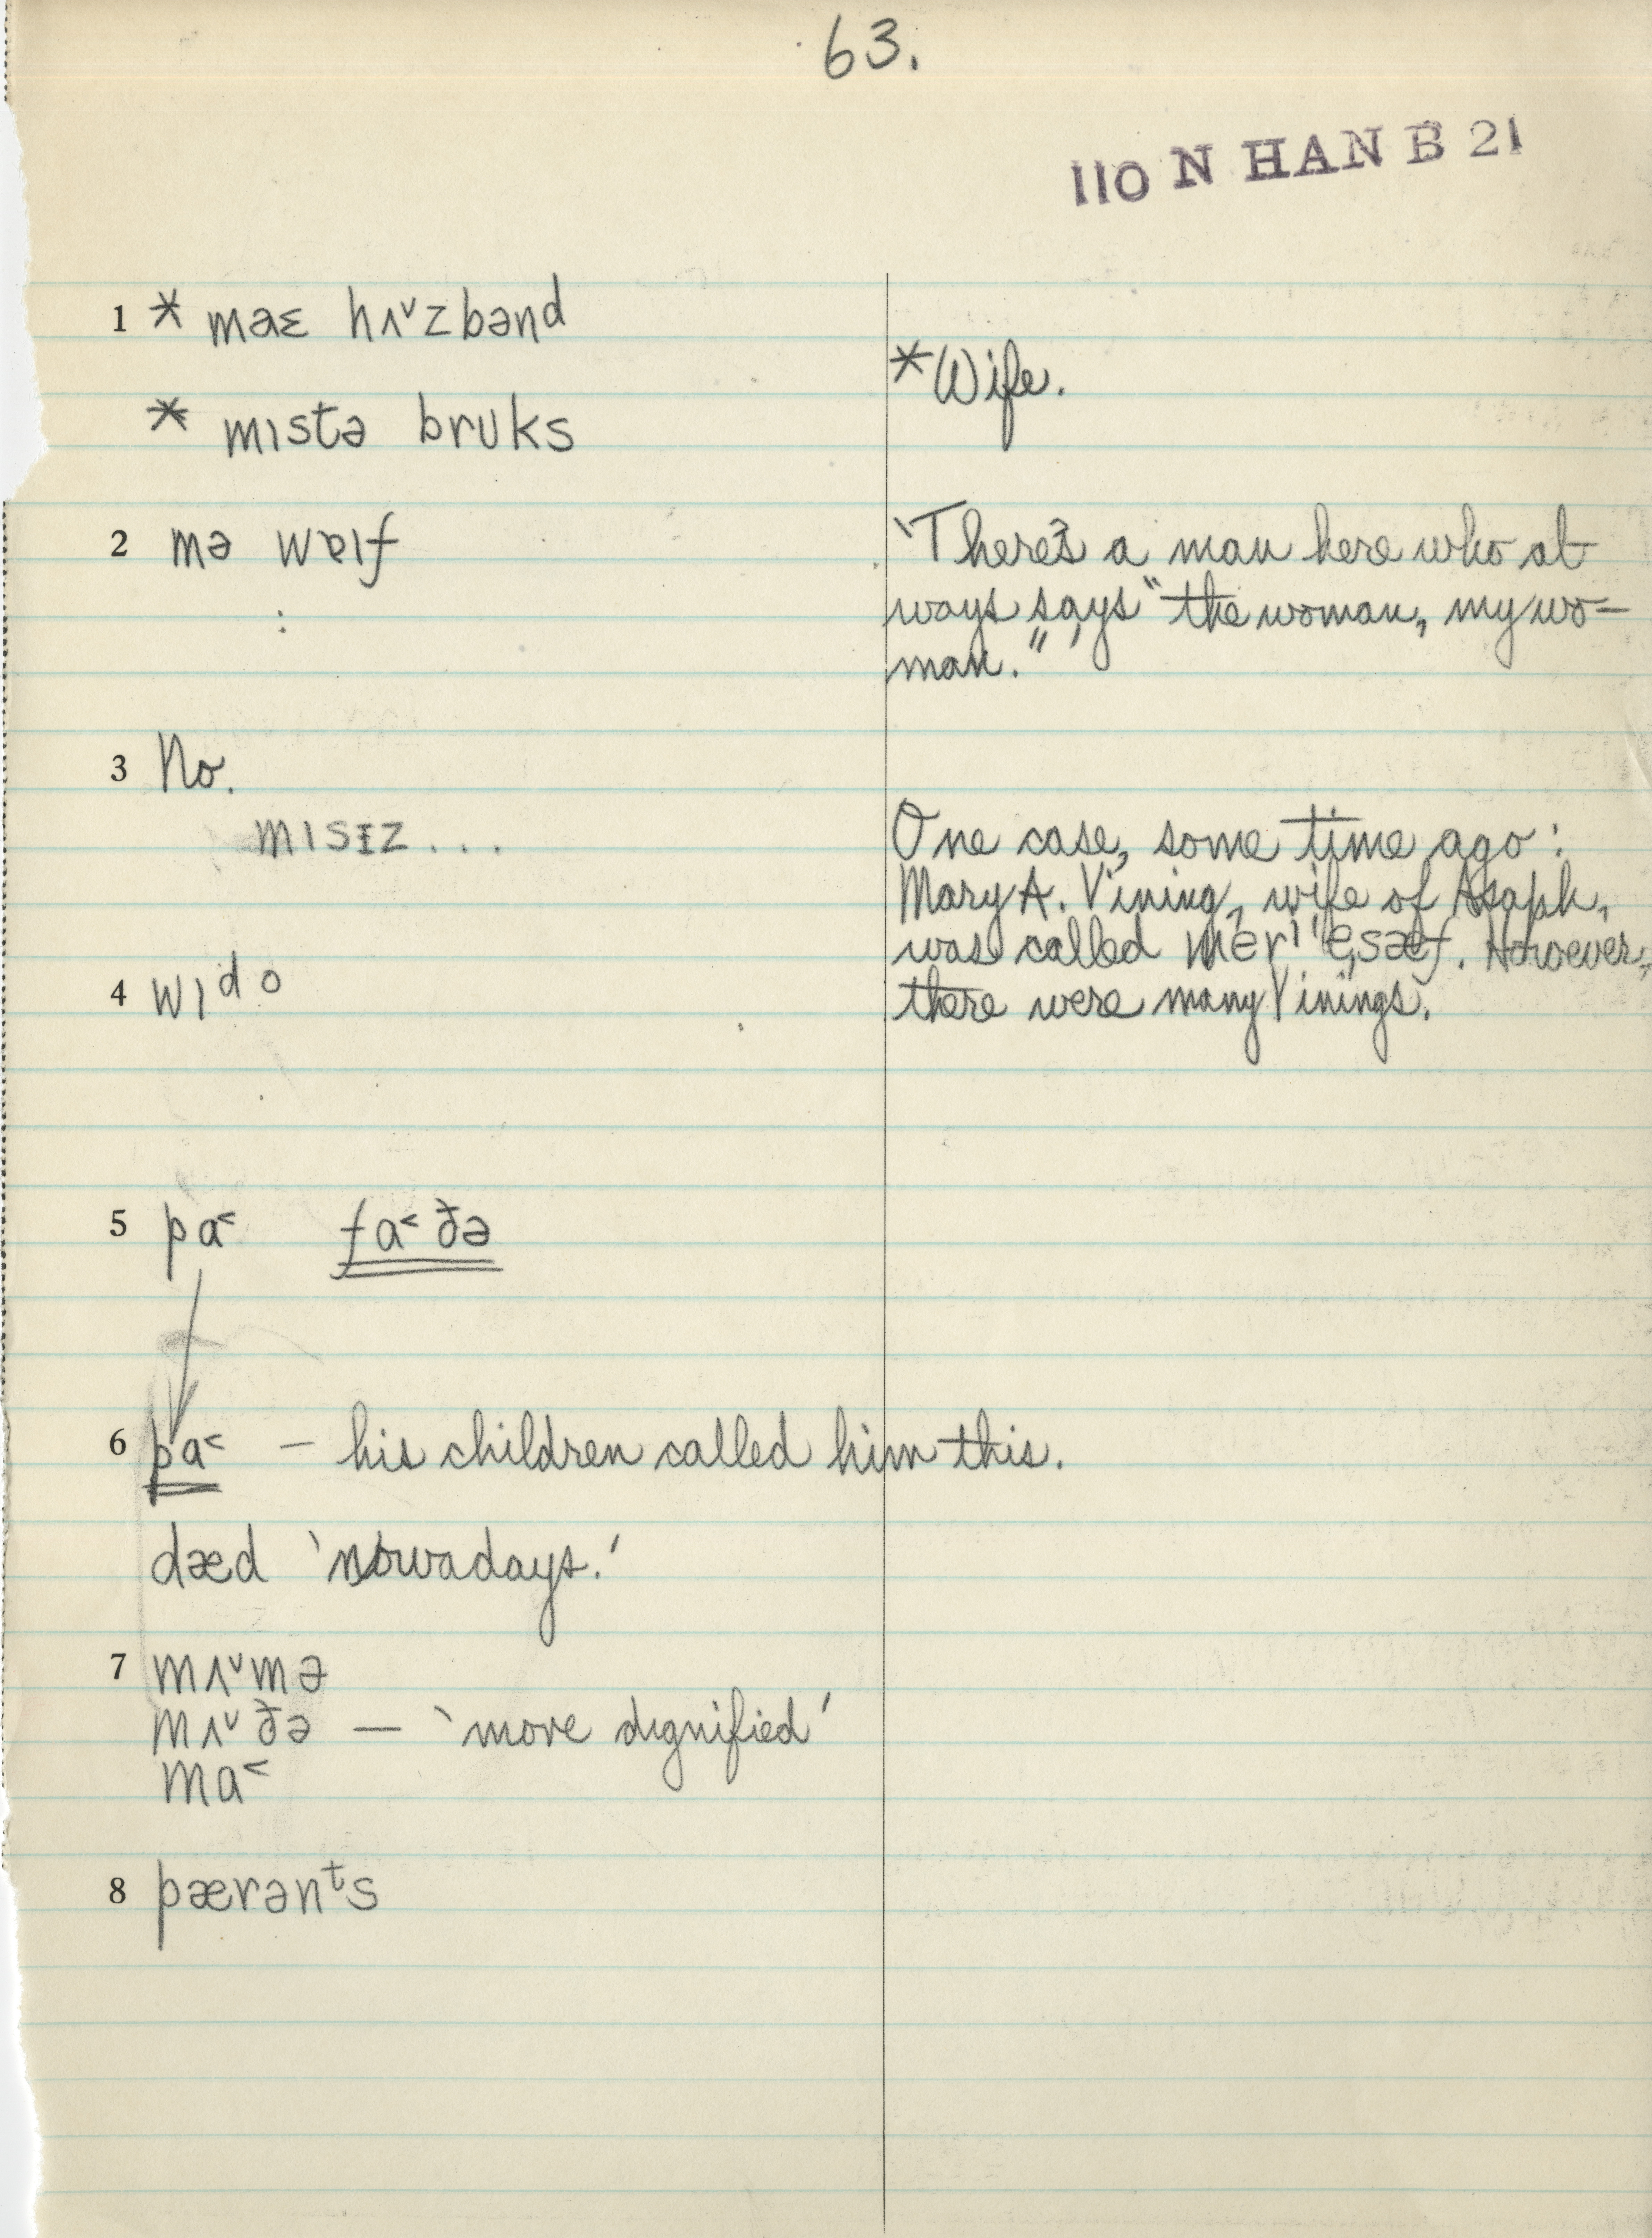 63.
110 N HAN B 21
1 * maɛ hʌ˅zbənd
*Wife.
* mɪstə brʊks
2 mə wɐɪf
'There's a man here who al-
ways says "the woman, my wo-
man."'
3 No.
mɪsɪz...
One case, some time ago:
Mary A. Vining, wife of Asaph,
was called mɛrɪ 'esæf. However,
there were many Vinings.
4 wɪᵈo
5 pa˂ fa˂ðə
6 pa˂ – his children called him this.
dæd 'nowadays.'
7 mʌ˅mə
mʌ˅ðə — 'more dignified'
ma˂
8 pærənᵗs